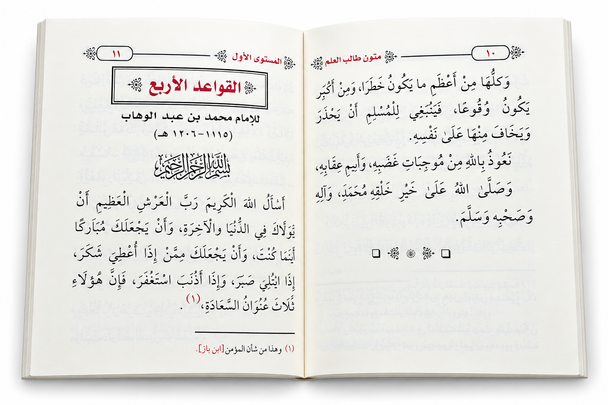 ١٠
متون طالب العلم
وَكُلُّهَا مِنْ أَعْظَمِ ما يَكُونُ خَطَرًا، وَمِنْ أَكْثَرِ
يَكُونُ وُقُوعًا، فَيَنْبَغِي لِلْمُسْلِمِ أَنْ يَحْذَرَ
وَيَخَافَ مِنْهَا عَلَىٰ نَفْسِهِ.
نَعُوذُ بِاللهِ مِنْ مُوجِبَاتِ غَضَبِهِ، وَأَلِيمِ عِقَابِهِ،
وَصَلَّىٰ اللهُ عَلَىٰ خَيْرِ خَلْقِهِ مُحَمَّدٍ، وَآلِهِ
وَصَحْبِهِ وَسَلَّمَ.
المستوى الأول
١١
القواعد الأربع
للإمام محمد بن عبد الوهاب
(١١١٥-١٢٠٦ هـ)
بسم الله الرحمن الرحيم
أَسْأَلُ اللهَ الْكَرِيمَ رَبَّ الْعَرْشِ الْعَظِيمِ أَنْ
يَتَوَلَّاكَ فِي الدُّنْيَا وَالْآخِرَةِ، وَأَنْ يَجْعَلَكَ مُبَارَكًا
أَيْنَمَا كُنْتَ، وَأَنْ يَجْعَلَكَ مِمَّنْ إِذَا أُعْطِيَ شَكَرَ،
إِذَا ابْتُلِيَ صَبَرَ، وَإِذَا أَذْنَبَ اسْتَغْفَرَ، فَإِنَّ هَؤُلَاءِ
ثَلَاثَ عُنْوَانُ السَّعَادَةِ،(١).
(١) وهذا من شأن المؤمن [ابن باز].